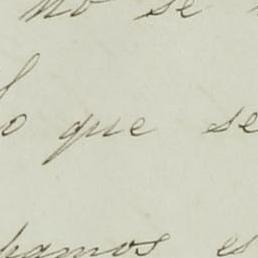 no se
lo que se
pamos es